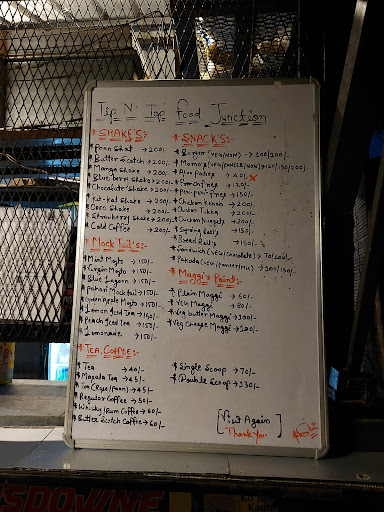 Tip N Top Food Junction
* SHAKE'S:-
Paan Shot → 200/-
Butter Scotch → 200/-
Mango Shake → 200/-
Blue berry shake → 200/-
Chocolate shake → 200/-
Kit-kat shake → 200/-
Oreo shake → 200/-
Strawberry shake → 200/-
Cold Coffee → 200/-
* Mock Tail's:-
Mint Mojito → 150/-
Virgin Mojito → 150/-
Blue Lagoon → 150/-
Pahari Mocktail → 150/-
Green Apple Mojito → 150/-
Lemon Iced Tea → 150/-
Peach Iced Tea → 150/-
Lemonade → 150/-
* Tea, Coffee:-
Tea → 40/-
Masala Tea → 45/-
Regular Coffee → 50/-
Whisky/Rum Coffee → 60/-
Butter Scotch Coffee → 60/-
* SNACK'S:-
Burger (VEG/NON) → 100/200/-
Momo's (VEG/PANEER/NON) → 120/150/200
Aloo Patty → 40/-
French fries → 120/-
Peri-peri fries → 150/-
Chicken Kebab → 200/-
Chicken Tikka → 200/-
Chicken Nuggets → 200/-
Spring Roll's → 150/-
Bread Roll's → 150/-
Sandwich (VEG/chocolate) → 70/100/-
Pakoda (VEG/PANEER/MIX) → 100/150/-
* Maggi's Point:-
Plain Maggi → 60/-
VEG Maggi → 80/-
Veg butter Maggi → 100/-
Veg cheese Maggi → 120/-
Single Scoop → 70/-
Double Scoop → 130/-
[Visit Again
Thank You]